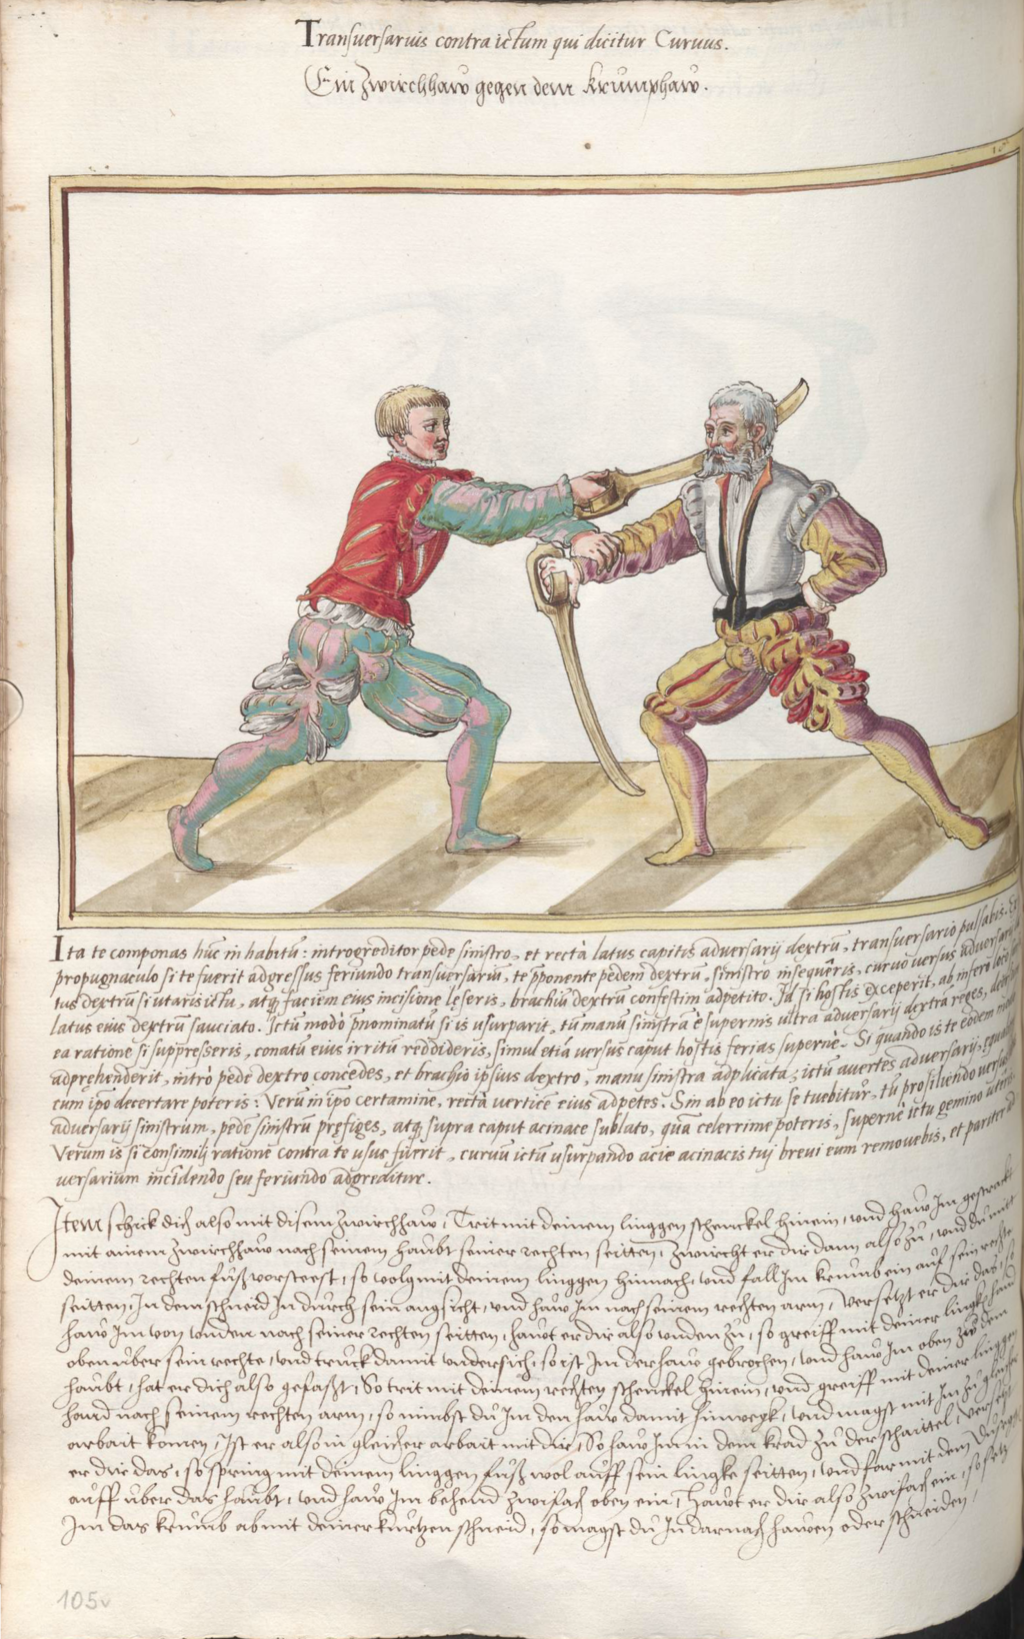 Transuersarius contra ictum qui dicitur Curuus.
Ein Zwirchhaw gegen dem Krumphaw.
Ita te componas hūc in habitū: introgreditor pede sinistro, et rectà latus capitis adversarij dextrū, transuersario pulsabis.
propugnaculo si te fuerit adgressus feriundo transuersariū, te ꝓponente pedem dextrū, sinistro insequêris, curuo uersus adversarij
tus dextrū si utaris ictu, atq̃ faciem eius incisione leseris, brachiū dextrum confestim adpetito. Id si hostis exceperit, ab infero loco
latus eius dextrū sauciato. Ictū modò p̄nominatū si is usurparit, tū manu sinistra è supernis ultra adversarij dextrā reges,
ea ratione si suppresseris, conatū eius irritū reddideris, simul etiā uersus caput hostis ferias supernè. Si quando is te eodem
adprehenderit, intrò pede dextro concedes, et brachio ipsius dextro, manu sinistra adplicata, ictū auertes adversarij,
cum ipō decertare poteris: Verū in ipō certamine, rectà uerticē eius adpetes. Sin ab eo ictu se tuebitur, tū prosiliendo uersus
adversarij sinistrum, pede sinistrū prefiges, atq̃ supra caput acinace sublato, quā celerrime poteris, supernè ictu gemino
Verum is si consimilj ratione contra te usus fuerit, curuū ictū usurpando acie acinacis tuj breui eum remouebis, et pariter
uersarium incidendo seu feriundo adgreditur.
Item schick dich also mit disem Zwirchhaw, Trit mit deinem linggen schenckel hinein, vnd haw Im gestracks
mit ainem Zwirchhaw nach seinem haubt seiner rechten seitten, Zwircht er dir dann also zu, vnd du mit
deinem rechten fuß vorsteest, so volg mit deinem linggen hinnach, vnd fall Im krumb ein auf sein rechte
seitten, In dem schneid In durch sein angsicht, vnd haw Im nach seinem rechten arm, Versetzt er dir das, so
haw Im von vnden nach seiner rechten seitten, hawt er dir also vnden zu, so greiff mit deiner lingken hand
oben uber sein rechte, vnd truck damit vndersich, so ist Im der haw gebrochen, vnd haw Im oben zu dem
haubt, hat er dich also gefasst, So trit mit deinem rechten schenckel hinein, vnd greiff mit deiner linggen
hand nach seinem rechten arm, so nimbst du Im den haw damit hinweyk, vnd magst mit Im zu gleicher
arbait komen, Ist er also in gleicher arbait mit dir, So haw Im in dem krad zu der schaittel, versetzt
er dir das, so spring mit deinem linggen fuß wol auff sein lingke seitten, vnd far mit dem Dusegken
auff uber das haubt, vnd haw Im behend zwifach oben ein, hawt er dir also zwifach ein, so setz
Im das krumb ab mit deiner kurtzen schneid, so magst du In darnach hawen oder schneiden,
105v